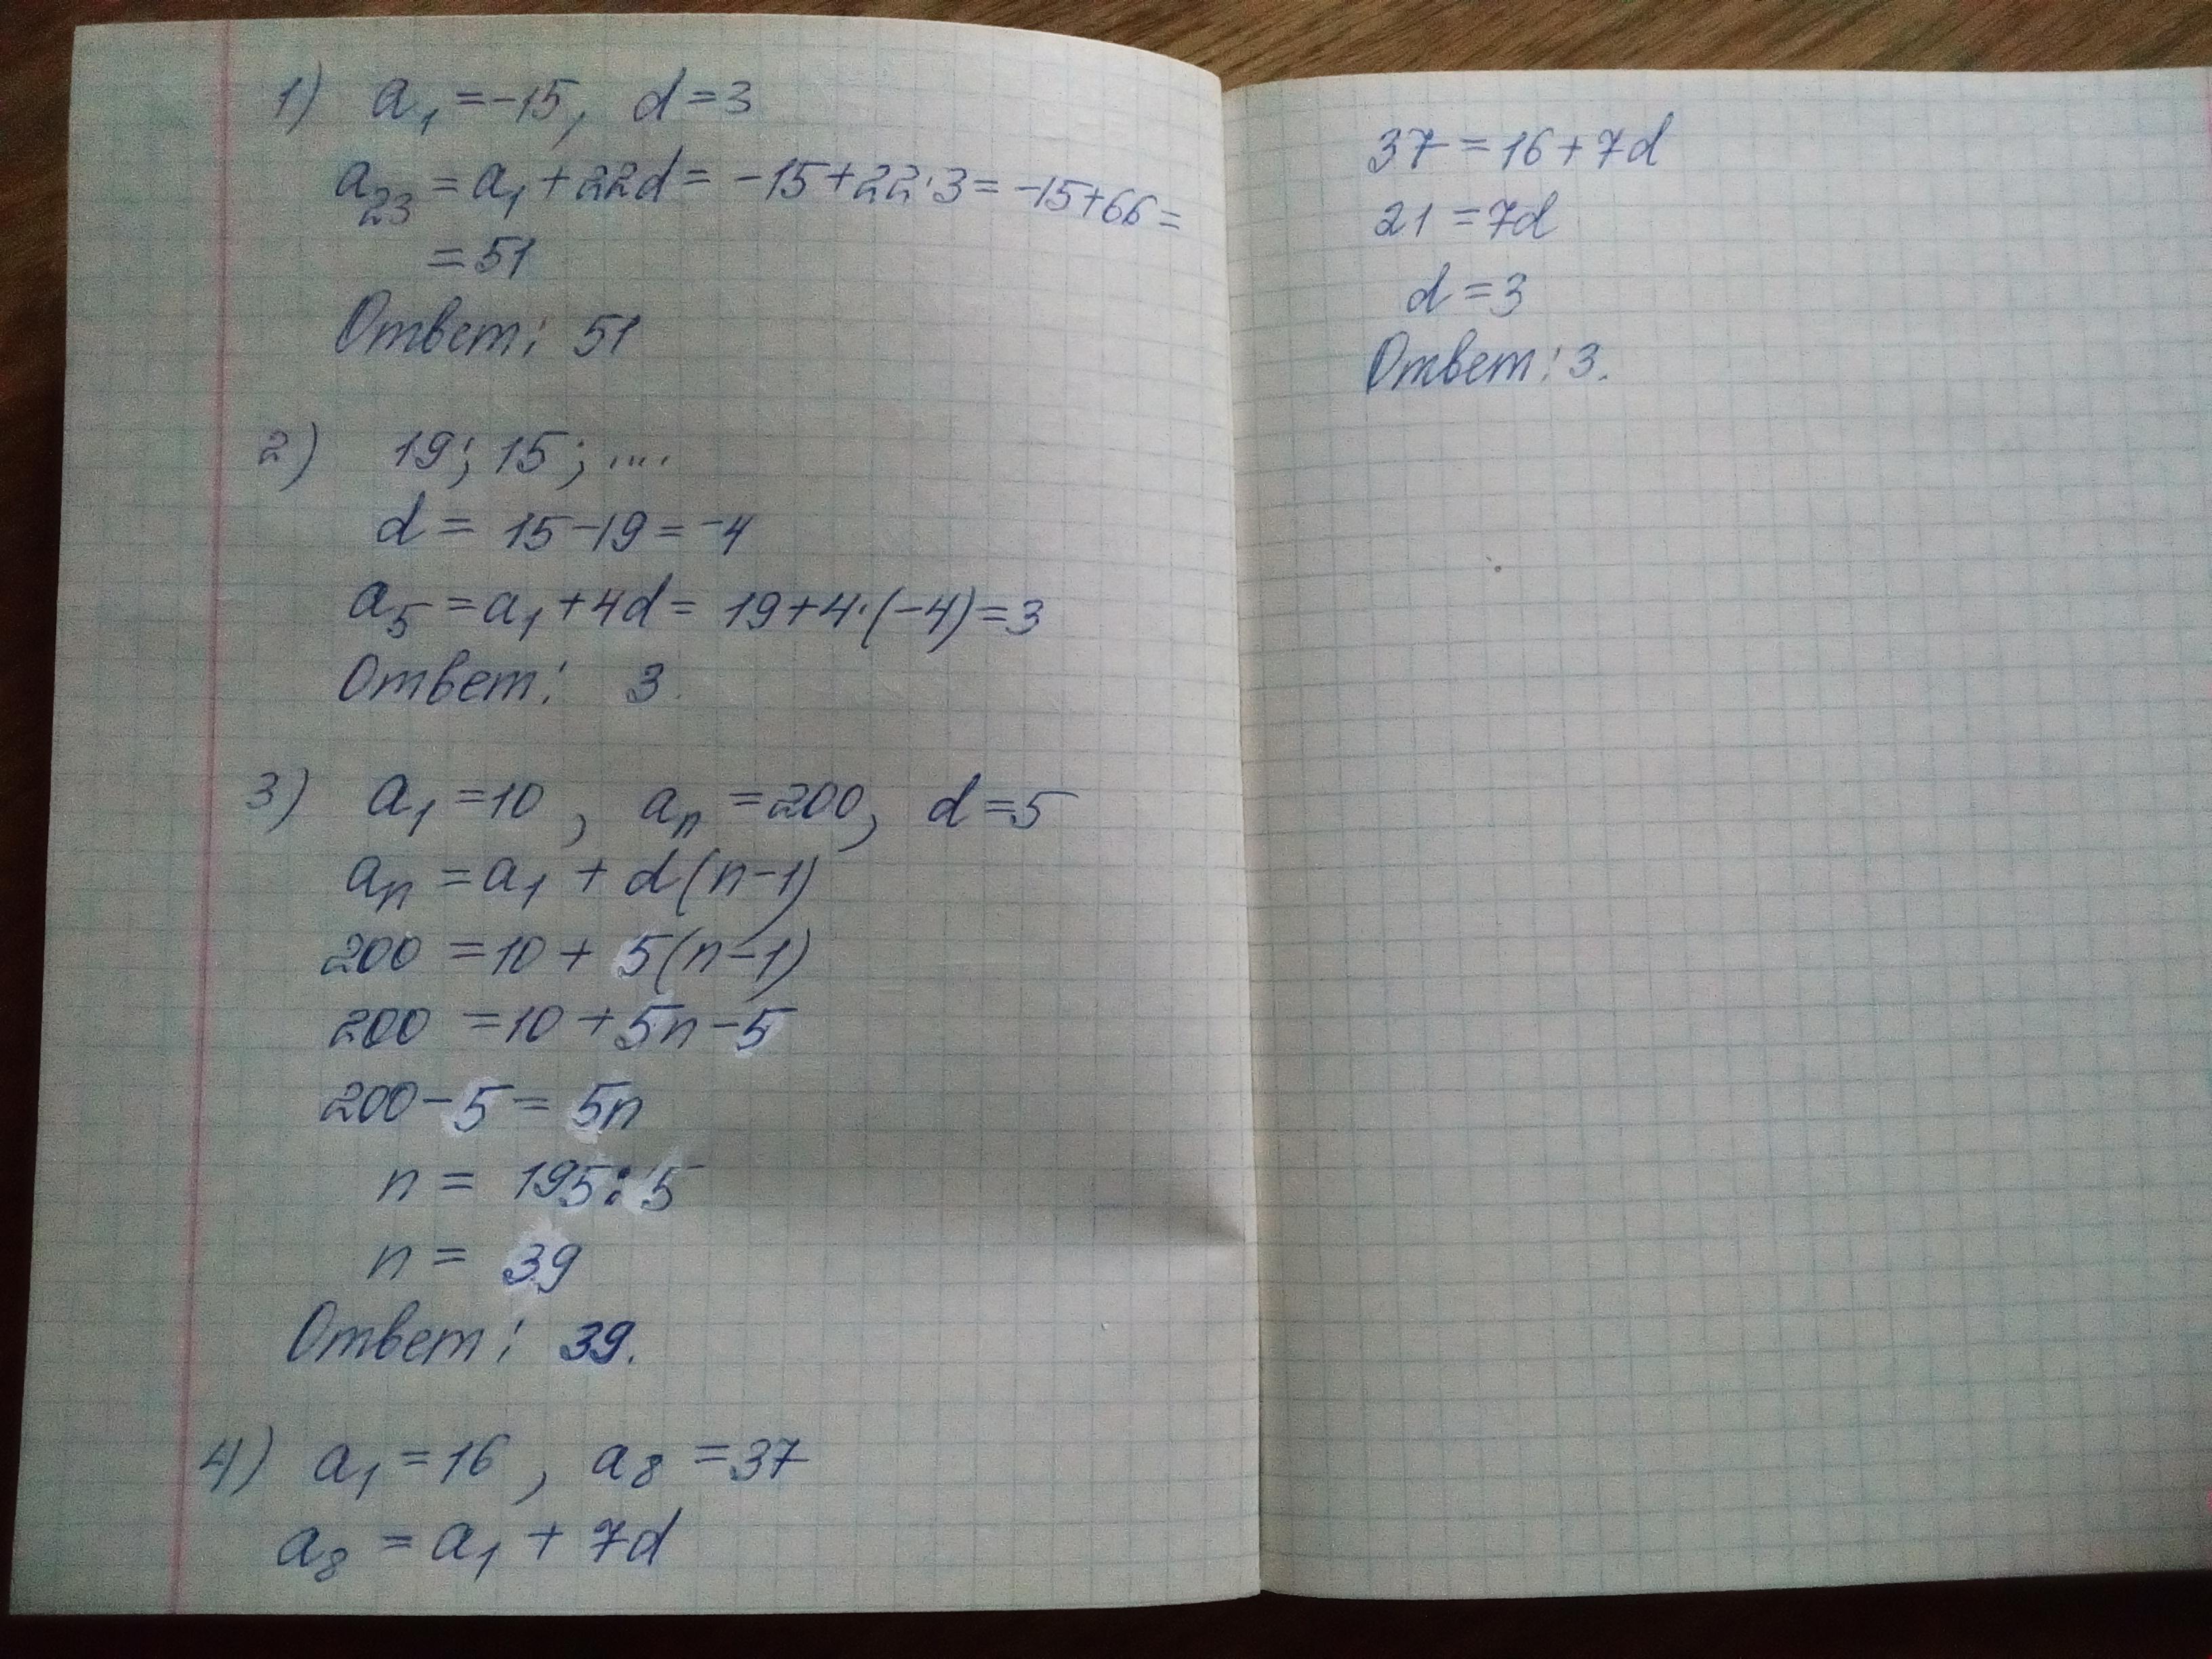 1) a₁ = -15, d = 3
a₂₃ = a₁ + 22d = -15 + 22·3 = -15 + 66 =
= 51
Ответ: 51
2) 19; 15; ....
d = 15 - 19 = -4
a₅ = a₁ + 4d = 19 + 4·(-4) = 3
Ответ: 3.
3) a₁ = 10, aₙ = 200, d = 5
aₙ = a₁ + d(n-1)
200 = 10 + 5(n-1)
200 = 10 + 5n - 5
200 - 5 = 5n
n = 195:5
n = 39
Ответ: 39.
4) a₁ = 16, a₈ = 37
a₈ = a₁ + 7d
37 = 16 + 7d
21 = 7d
d = 3
Ответ: 3.